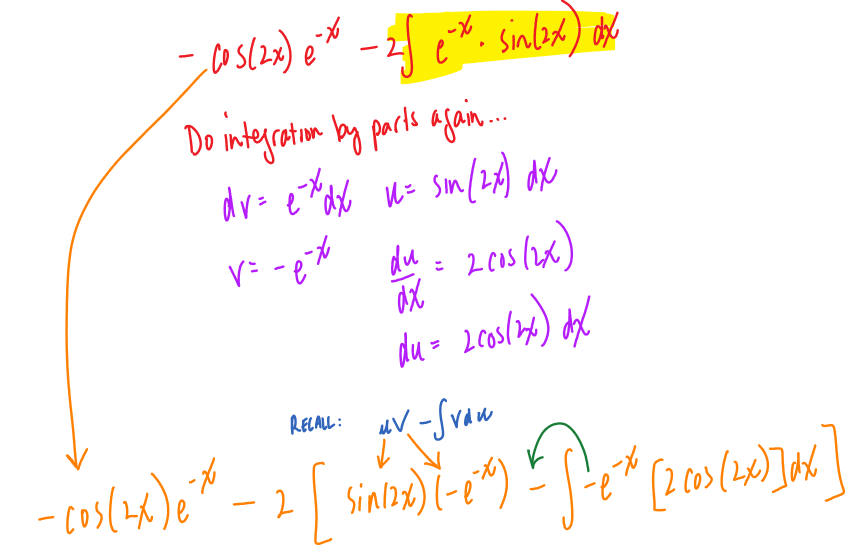 - cos(2x) e^{-x} - 2 ∫ e^{-x} · sin(2x) dx
Do integration by parts again...
dv = e^{-x} dx   u = sin(2x) dx
v = - e^{-x}   du/dx = 2 cos(2x)
du = 2cos(2x) dx
RECALL: uv - ∫ v du
- cos(2x) e^{-x} - 2 [ sin(2x) (-e^{-x}) - ∫ -e^{-x} [2 cos(2x)] dx ]